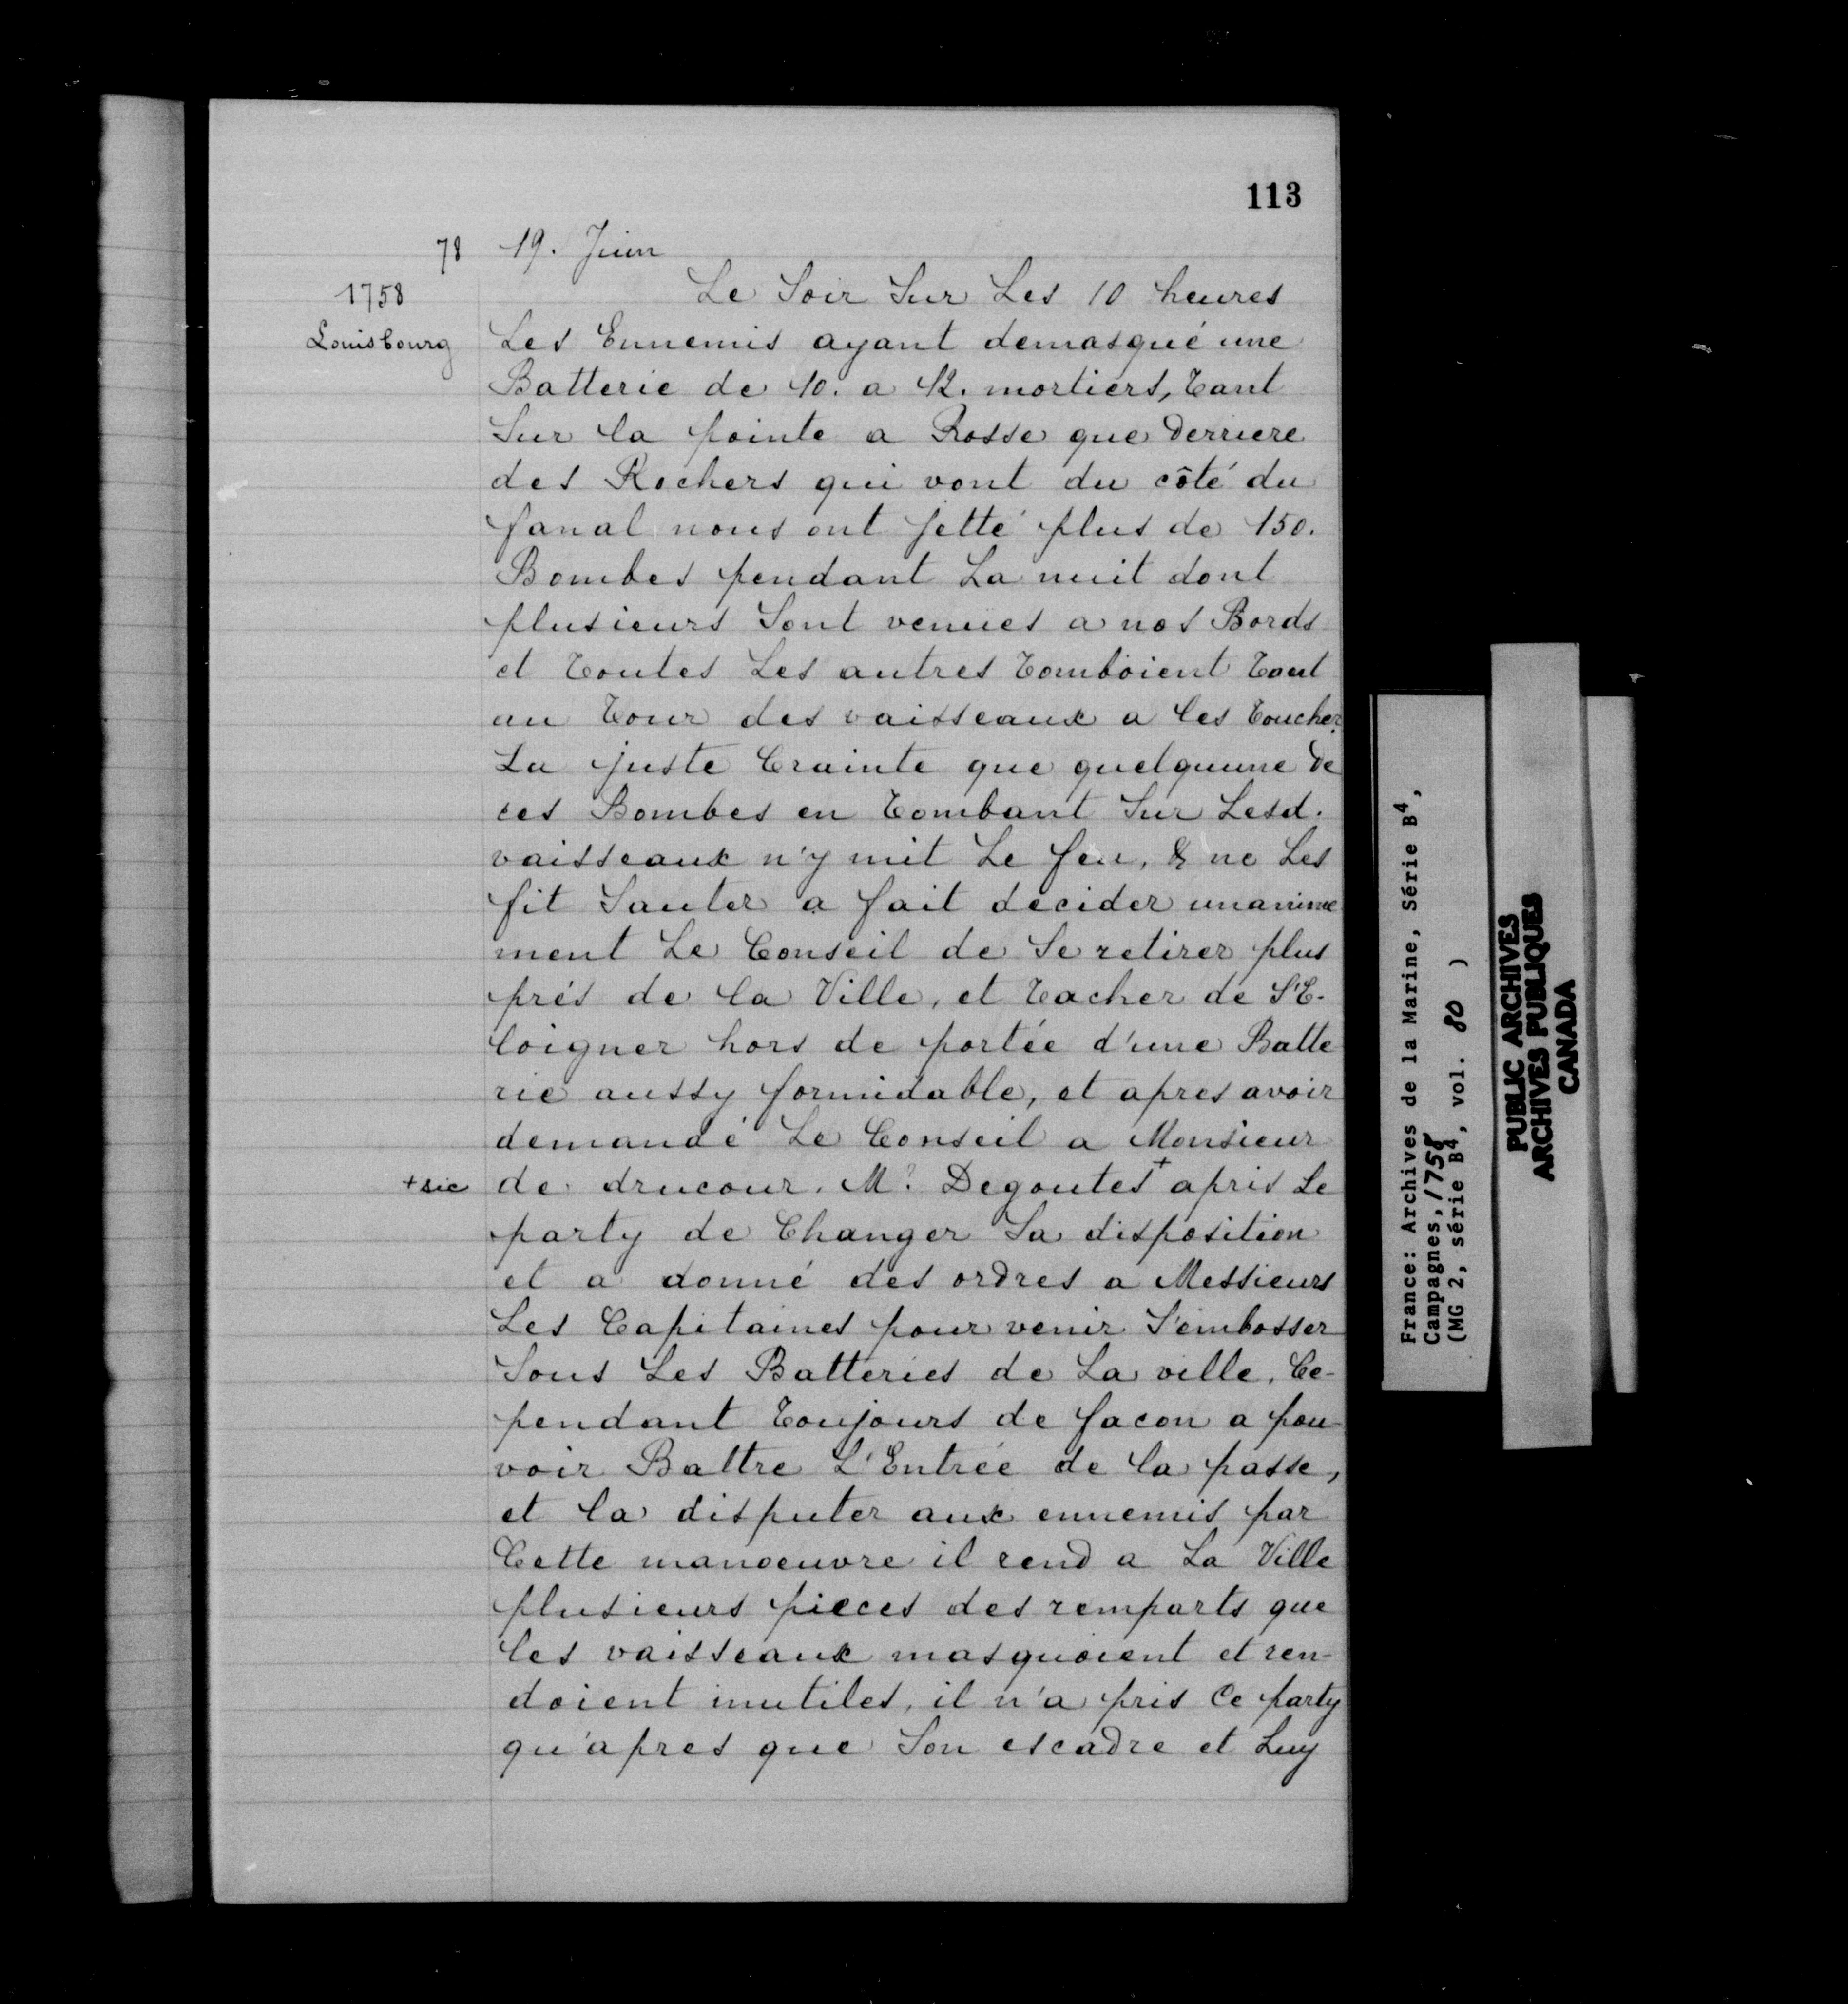 113
78 19. Juin
1758
Louisbourg
Le Soir Sur Les 10 heures
Les Ennemis ayant demasqué une
Batterie de 10. a 12. mortiers, tant
Sur la pointe a Rosse que derriere
des Rochers qui vont du côté du
fanal nous ont jetté plus de 150.
Bombes pendant La nuit dont
plusieurs Sont venues a nos Bords
et toutes Les autres tomboient tout
au tour des vaisseaux a les toucher.
La juste Crainte que quelqu'une de
ces Bombes en tombant Sur Lesd.
vaisseaux n'y mit Le feu, & ne Les
fit Sauter a fait decider unanime
ment Le Conseil de Se retirer plus
prés de la Ville, et tacher de S'E-
loigner hors de portée d'une Batte
rie aussy formidable, et apres avoir
demandé Le Conseil a Monsieur
+sic de drucour. Mr. Degoutes+ apris Le
party de Changer Sa disposition
et a donné des ordres a Messieurs
Les Capitaines pour venir S'embosser
Sous Les Batteries de La ville, Ce-
pendant toujours de facon a pou-
voir Battre L'Entrée de la passe,
et la disputer aux ennemis par
Cette manoeuvre il rend a La Ville
plusieurs pieces des remparts que
les vaisseaux masquoient et ren-
doient inutiles, il n'a pris Ce party
qu'apres que Son escadre et Luy
France: Archives de la Marine, Série B4,
Campagnes, 1758
(MG 2, série B4, vol. 80 )
PUBLIC ARCHIVES
ARCHIVES PUBLIQUES
CANADA